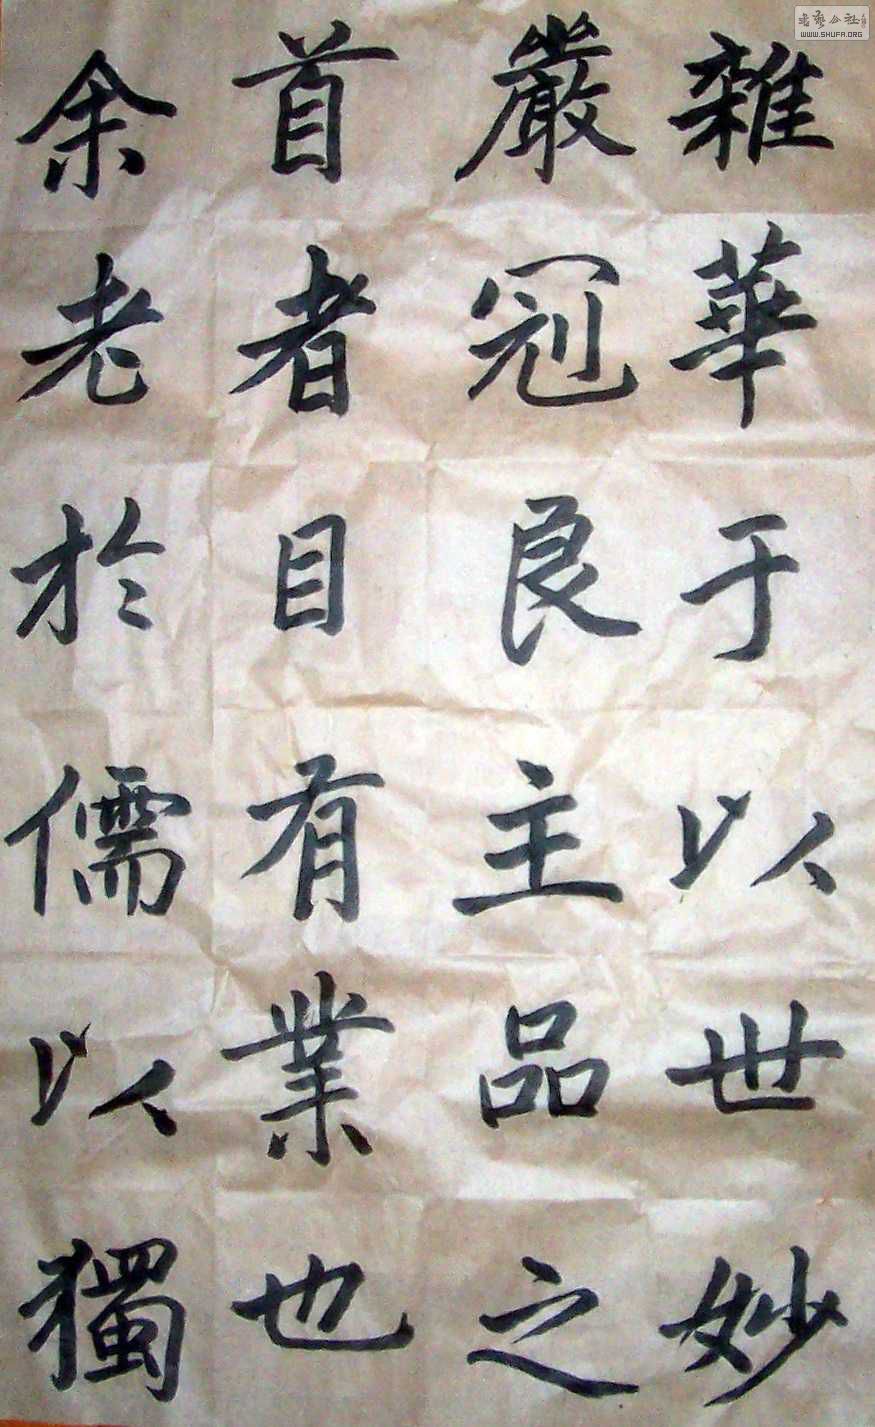 雜華于以世妙
嚴冠良主品之
首者目有業也
余老於儒以獨
WWW.SHUFA.ORG